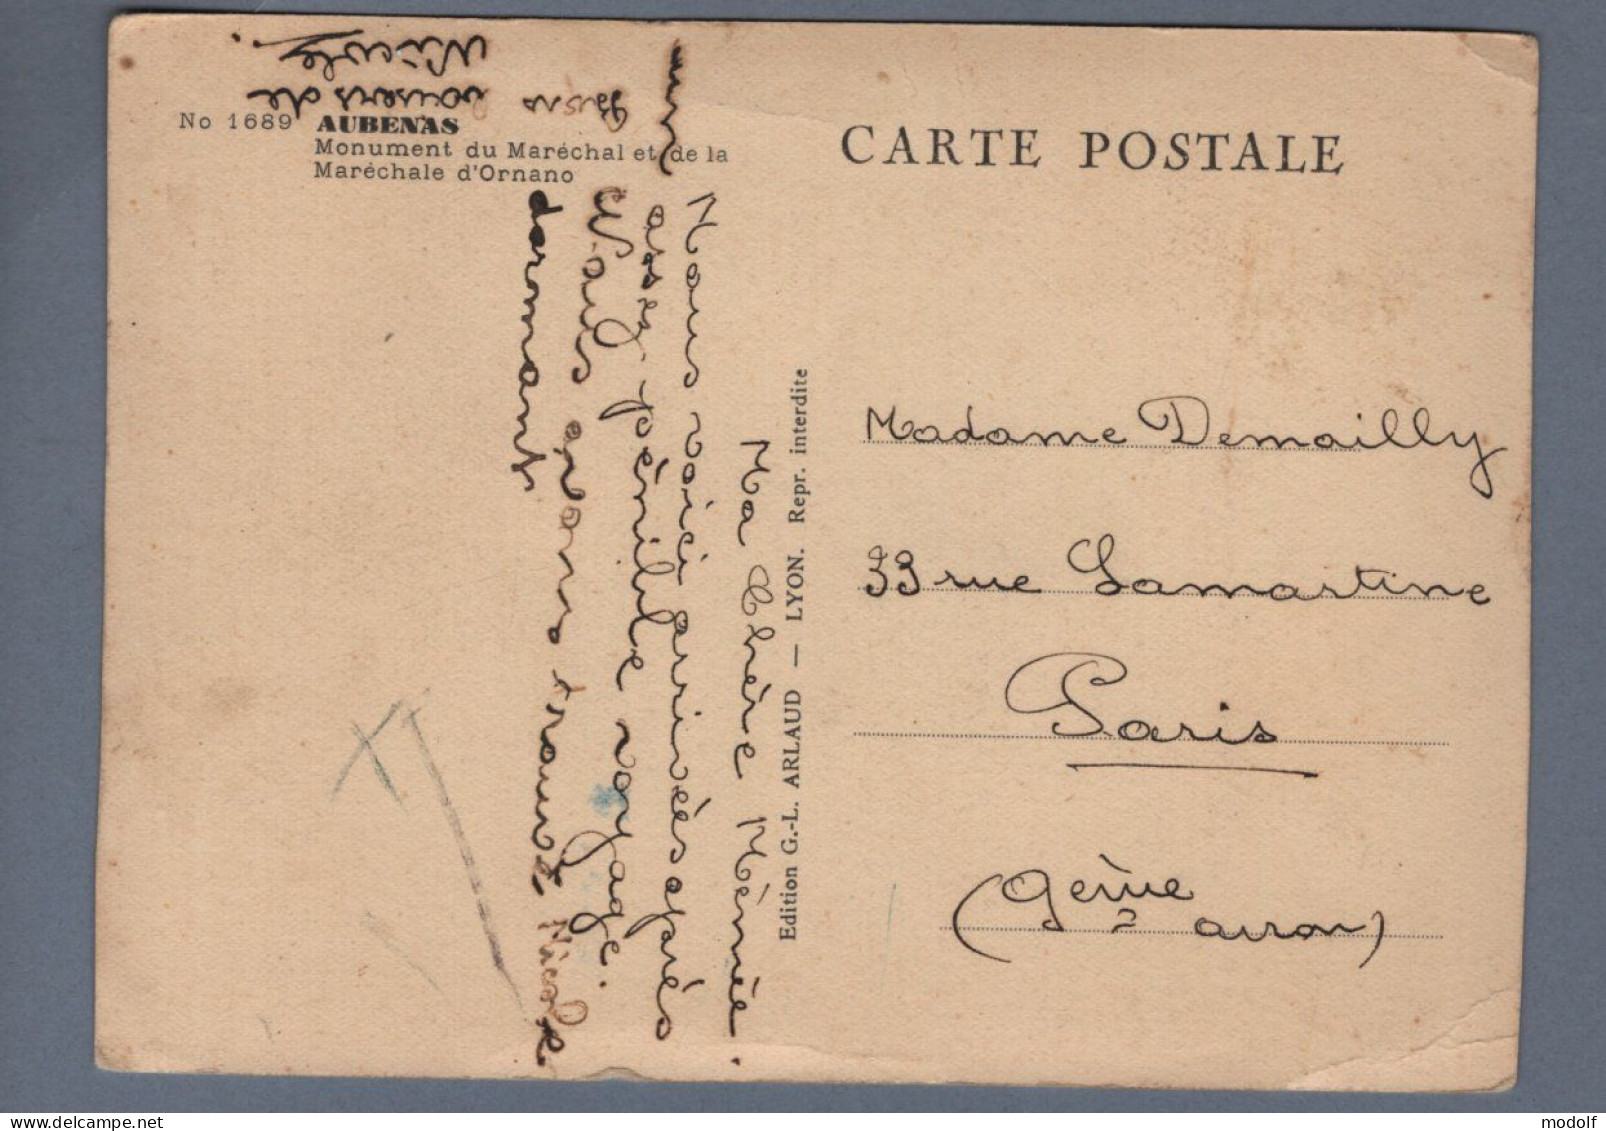 No 1689 AUBENAS
Monument du Maréchal et de la
Maréchale d'Ornano
CARTE POSTALE
Edition G.-L. ARLAUD — LYON. Repr. interdite
Madame Demailly
33 rue Lamartine
Paris
(9ème arron)
Ma Chère Mémée.
Nous voici arrivées après
un
assez pénible voyage.
Nous avons trouvé Nicole
dormant
Bons
baisers de
Nicole.
modolf